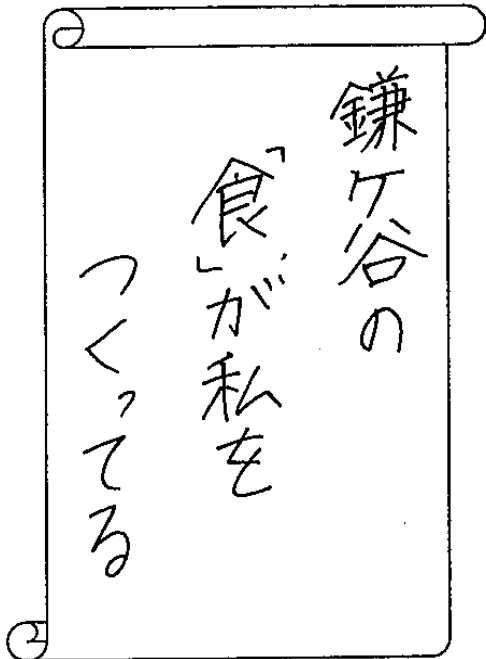 鎌ケ谷の
「食」が私を
つくってる